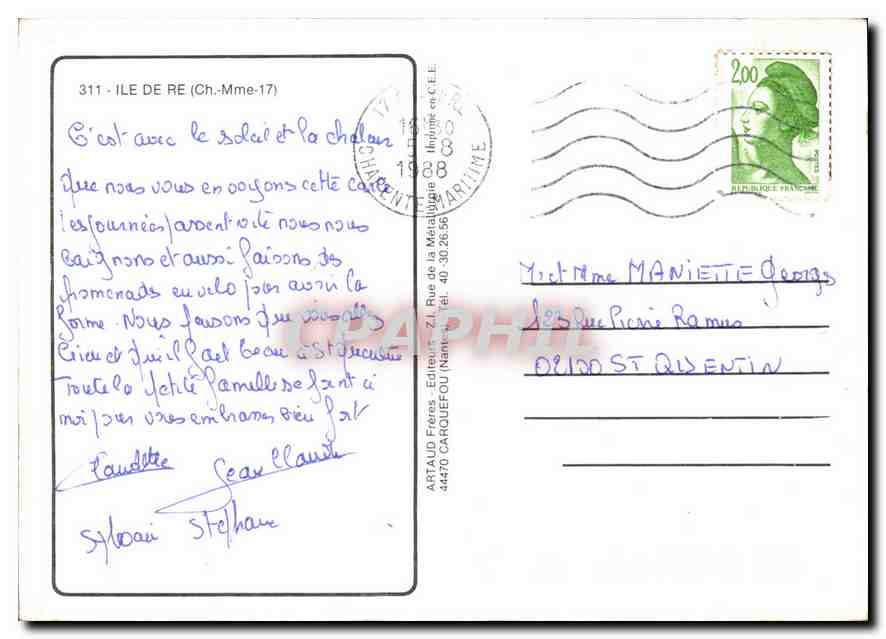 311 - ILE DE RE (Ch.-Mme-17)
C'est avec le soleil et la chaleur
Que nous vous envoyons cette carte
les journées passent vite nous nous
baignons et aussi faisons des
promenades en velo pour avoir la
forme. Nous pensons que vous allez
bien et qu'il fait beau à St Quentin
Toute la petite famille se joint à
moi pour vous embrasser bien fort
Claudette Jean Claude
Sylvain Stéphane
ARTAUD Frères - Editeurs - Z.I. Rue de la Métallurgie Imprimé en C.E.E.
44470 CARQUEFOU (Nantes) Tél. 40 30.26.56
17
16 H
8
1988
CHARENTE MARITIME
2,00
POSTES
REPUBLIQUE FRANÇAISE
Mr et Mme MANIETTE Georges
123 Rue Pierre Ramus
02100 ST QUENTIN
CPAPHIL